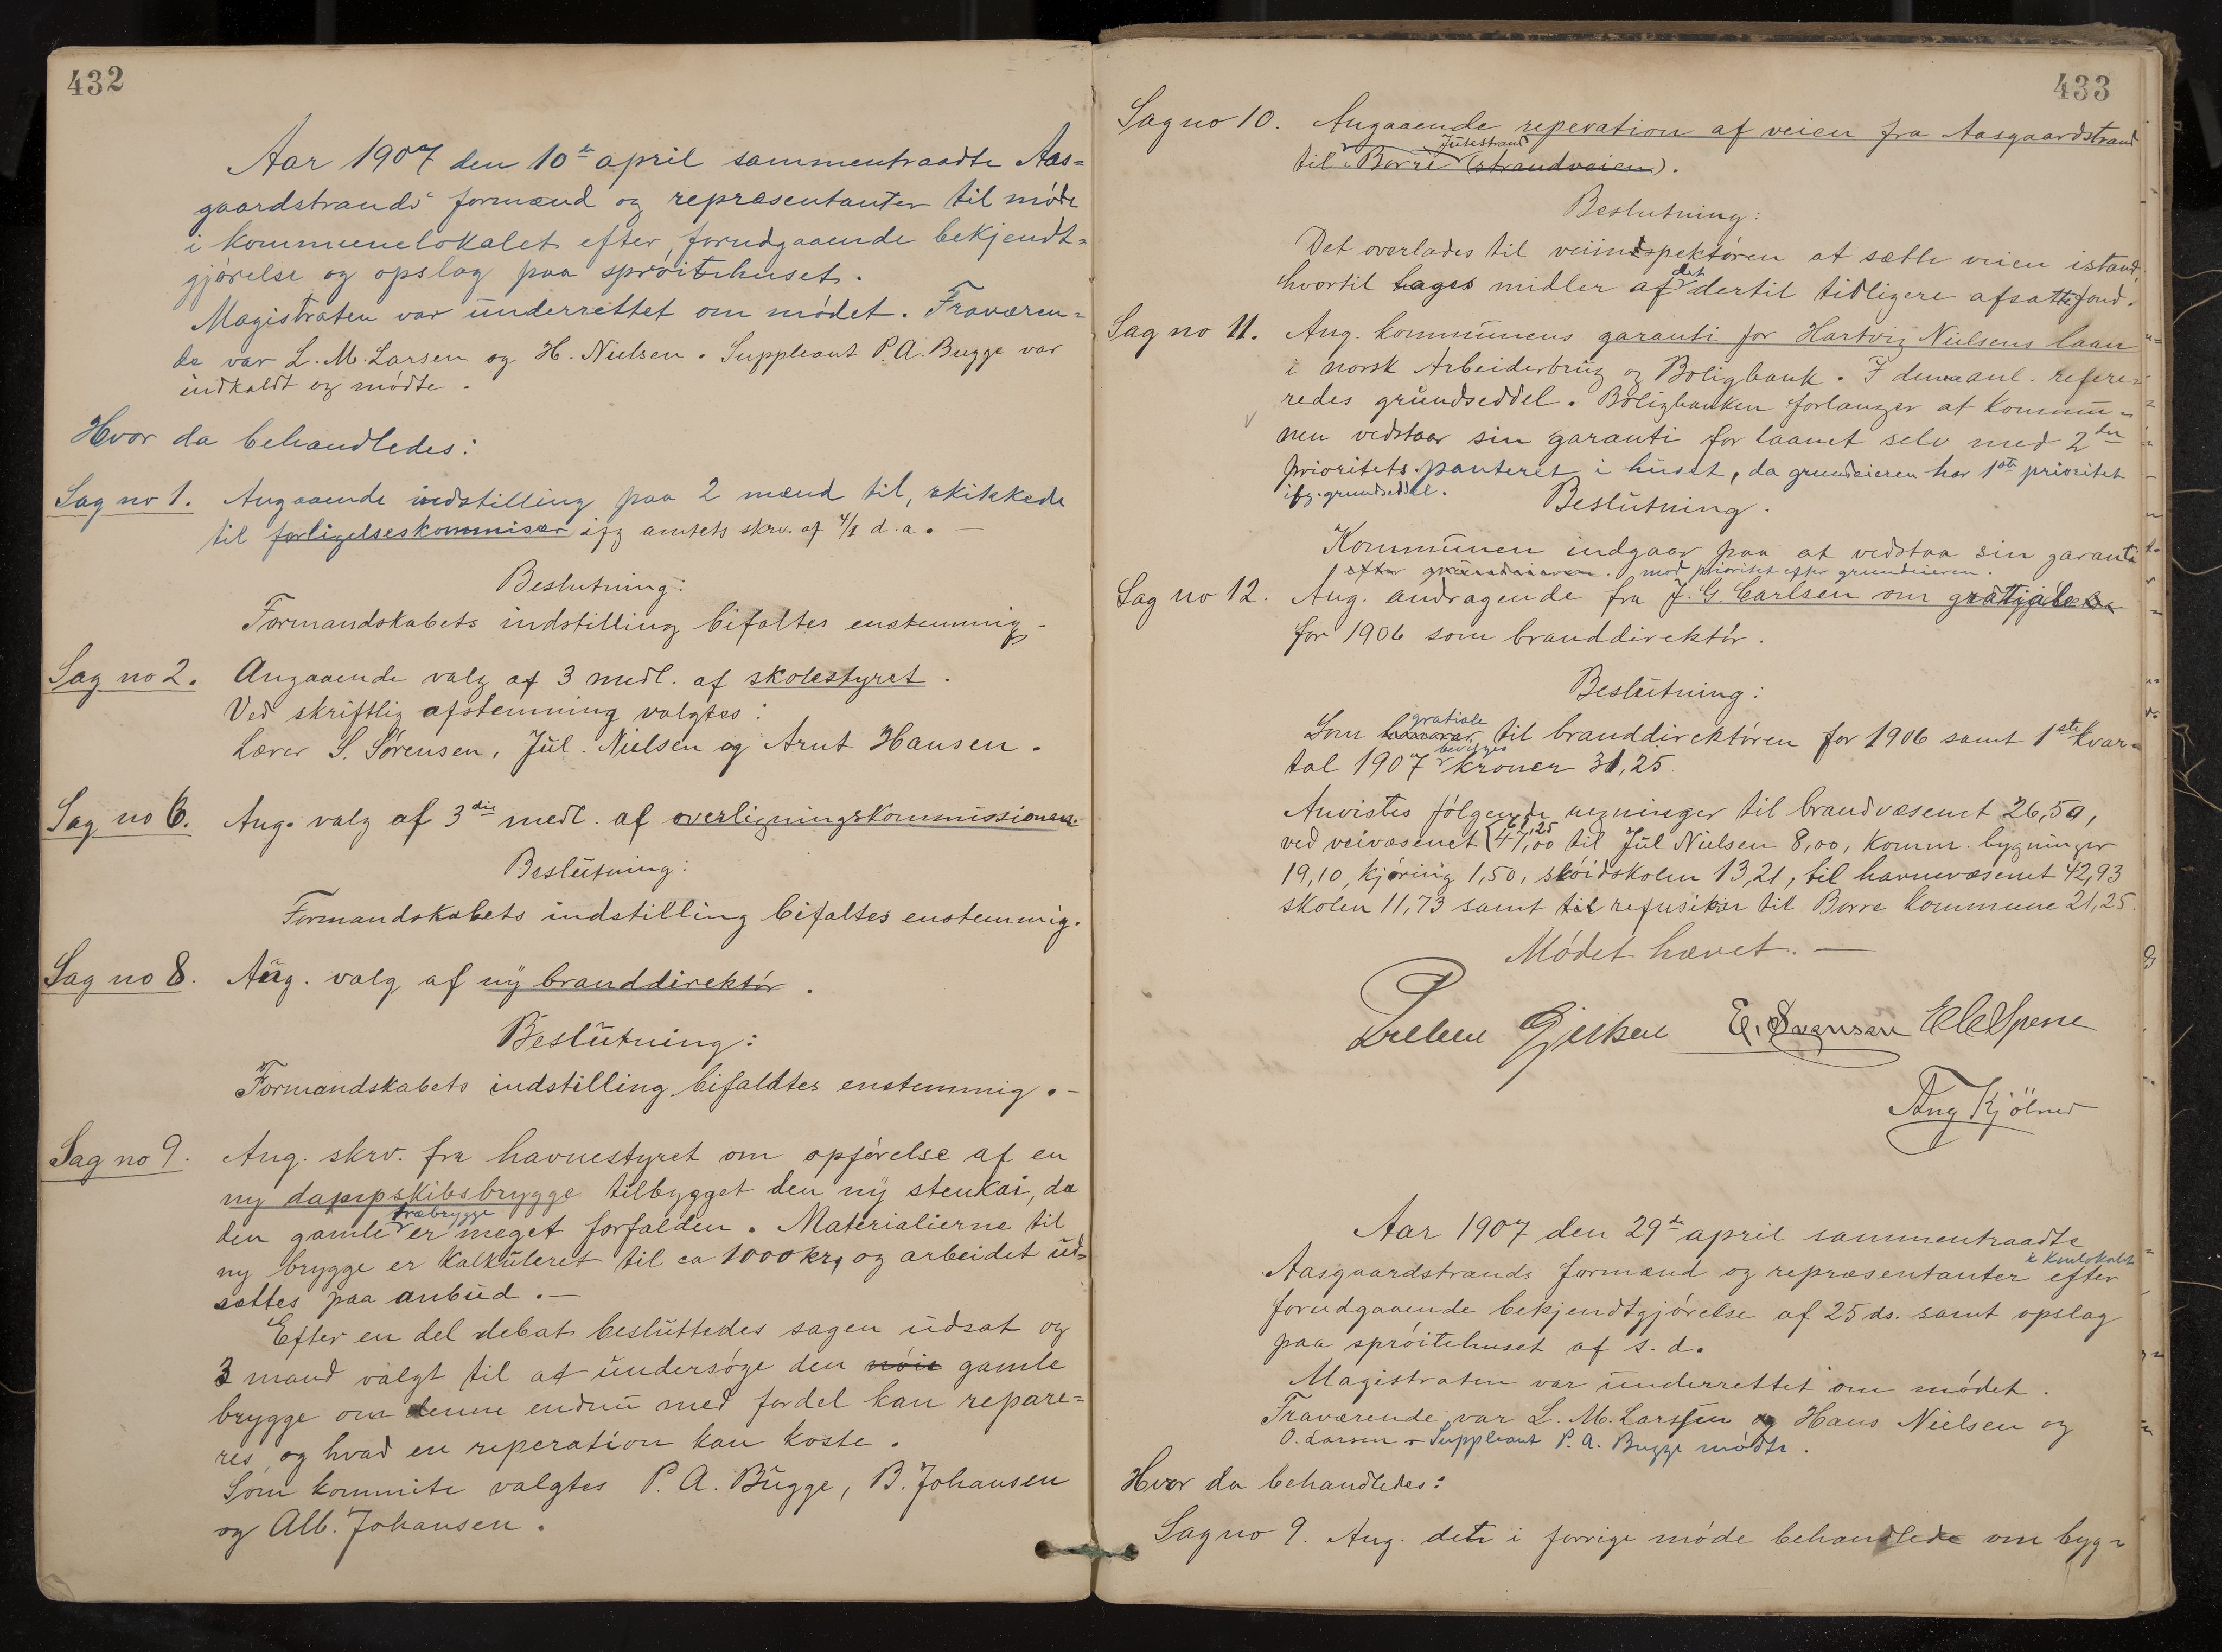 432
Aar 1907 den 10de april sammentraadte Aas=
gaardstrands formænd og repræsentanter til møde
i kommunelokalet efter forudgaaende bekjendt=
gjørelse og opslag paa sprøitehuset.
Magistraten var underrettet om mødet. Fraværen=
de var L. M. Larsen og H. Nielsen. Suppleant P. A. Bugge var
indkaldt og mødte.
Hvor da behandledes:
Sag no 1. Angaaende indstilling paa 2 mænd til, skikkede
til forligelseskommisær ifg amtets skrv. af 4/1 d.a. —
Beslutning:
Formandskabets indstilling bifaltes enstemmig.
Sag no 2. Angaaende valg af 3 medl. af skolestyret.
Ved skriftlig afstemning valgtes:
Lærer S. Sørensen, Jul. Nielsen og Arnt Hansen.
Sag no 6. Ang. valg af 3die medl. af overligningskommissionen
Beslutning:
Formandskabets indstilling bifaltes enstemmig.
Sag no 8. Ang. valg af ny branddirektør.
Beslutning:
Formandskabets indstilling bifaldtes enstemmig. —
Sag no 9. Ang. skrv. fra havnestyret om opførelse af en
ny dampskibsbrygge tilbygget den ny stenkai, da
den gamle træbrygge er meget forfalden. Materialierne til
ny brygge er kalkuleret til ca 1000 kr, og arbeidet ud=
sættes paa anbud. —
Efter en del debat besluttedes sagen udsat og
3 mand valgt til at undersøge den nøie gamle
brygge om denne endnu med fordel kan repare=
res, og hvad en reperation kan koste.
Som kommite valgtes P. A. Bugge, B. Johansen
og Alb. Johansen.
433
Sag no 10. Angaaende reperation af veien fra Aasgaardstrand
til Borre Julestrand (strandveien).
Beslutning:
Det overlades til veiindspektøren at sætte veien istand
hvortil tages midler af det dertil tidligere afsatte fond.
Sag no 11. Ang. kommunens garanti for Hartvig Nielsens laan
i norsk Arbeiderbrug og Boligbank. I den anl. refere=
redes grundseddel. Boligbanken forlanger at kommu=
nen vedstaar sin garanti for laanet selv med 2den
prioritets panteret i huset, da grundeieren har 1ste prioritet
ifg. grundseddel.
Beslutning.
Kommunen indgaar paa at vedstaa sin garanti
efter grundeieren. med prioritet efter grundeieren.
Sag no 12. Ang. andragende fra J. G. Carlsen om gratiale
for 1906 som branddirektør.
Beslutning:
Som gratiale til branddirektøren for 1906 samt 1ste kvar=
tal 1907 bevilges kroner 31,25.
Anvistes følgende regninger til brandvæsenet 26,50,
ved veivæsenet 61,25 47,00 til Jul Nielsen 8,00, komm. bygninger
19,10, kjøring 1,50, sløidskolen 13,21, til havnevæsenet 42,93
skolen 11,73 samt til refusion til Borre kommune 21,25.
Mødet hævet. —
Preben Gjerksen E. Svensen
Aug Kjölner
Aar 1907 den 29de april sammentraadte
Aasgaardstrands formænd og repræsentanter i kmlokalet efter
forudgaaende bekjendtgjørelse af 25 ds. samt opslag
paa sprøitehuset af s. d.
Magistraten var underrettet om mødet.
Fraværende var L. M. Larssen og Hans Nielsen og
O. Larsen - Suppleant P. A. Bugge mødte.
Hvor da behandledes:
Sag no 9. Ang. det i forrige møde behandlede om byg=